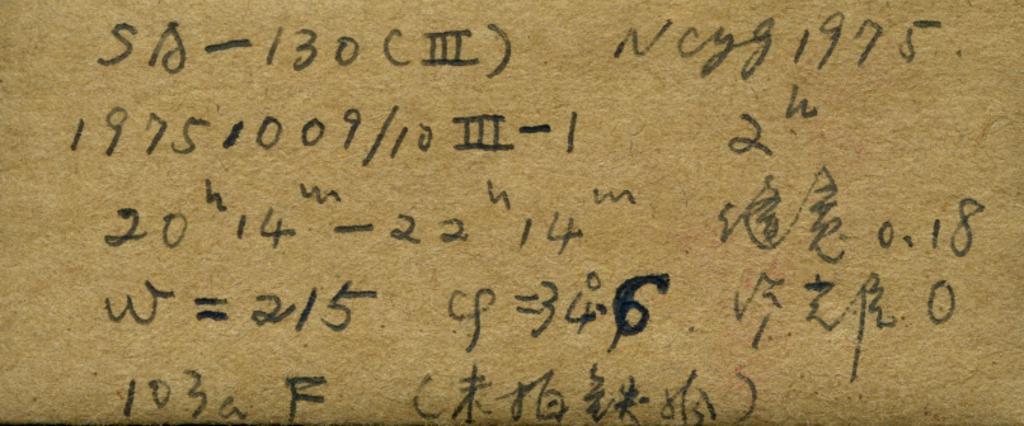 SA-130(III) NCyg 1975.
19751009/10 III-1 2h
20h14m-22h14m 缝宽 0.18
W=215 φ=34°.6 冷光阑 0
103a F (未拍铁弧)